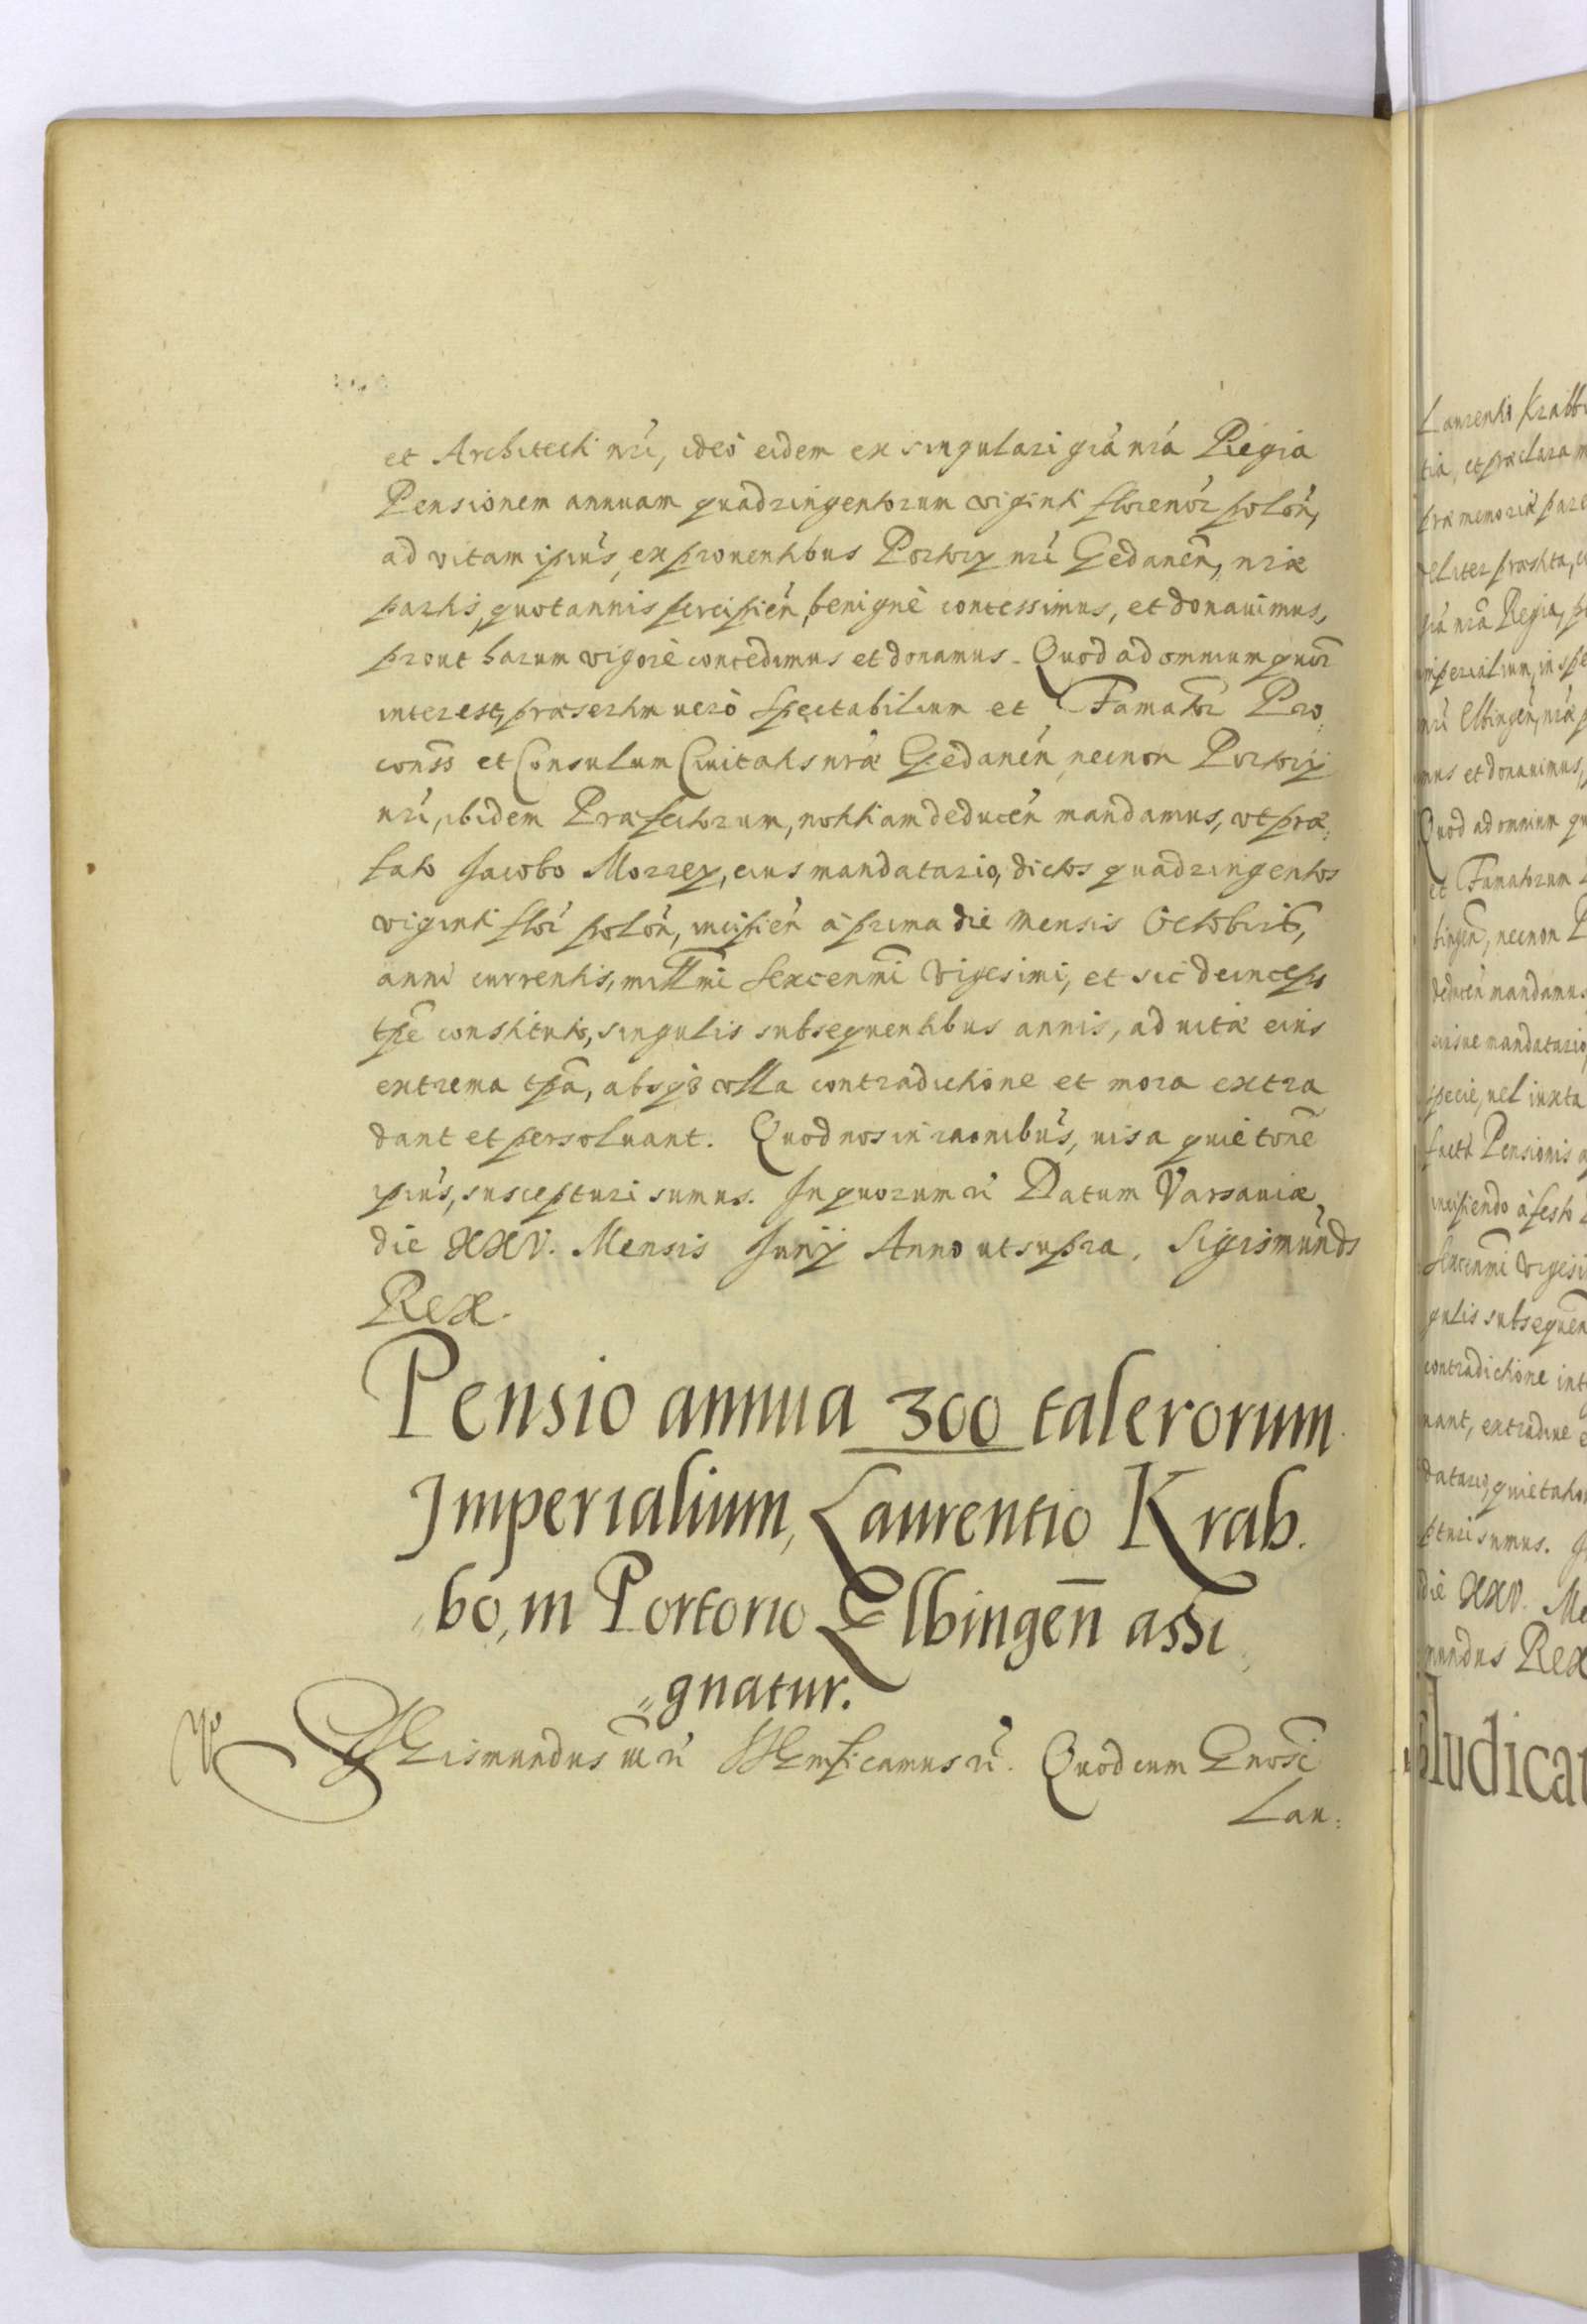 et Architecti nrí, ideò eidem ex singulari grá nrá Regia
Pensionem annuam quadringentorum viginti florenór polón,
ad vitam ipiús, ex prouentibus Portorÿ nrí Gedanen̄, nrae
partis, quotannis percipién, benignè concessimus, et donauimus,
prout harum vigorè concedimus et donamus. Quod ad omnium quor̄
interest, praesertim uerò Spectabilium et Famator̄ Pro,
conss̄ et Consulum Ciuitatis nrae Gedanén, necnon Portorÿ
nrí, ibidem Praefectorum, notitiam deducén mandamus, vt prae,
fato Jacobo Morrey, eius mandatario, dictos quadringentos
viginti flór polón, incipién à prima die Mensis Octobris,
anni currentis, milłmi Sexcenmī vigesimi, et sic deinceps
tpē constituto, singulis subsequentibus annis, ad uitae eius
extrema tpā, absq3 vlla contradictione et mora extra
dant et persoluant. Quod nos in raonibús, uisa quietonē
ipiús, suscepturi sumus. In quorum rí Datum Varsauiae,
die XXV. Mensis Junÿ Anno ut supra. Sigismúnds
Rex.
Pensio annua 300 talerorum
Imperialium, Laurentio Krab.
bo, in Portorio Elbingen̄ assi
„gnatur.
Sigismundus III rí Significamus rí. Quod cum Gnosī
Lau:
Laurentio Krabb
tia, et praeclara m
prae memoriae pare
eliter praestita,
grá nrā Regia, p
imperialium, in spe
nrí Elbingén, nrae p
mus et donauimus,
Quod ad omnium qu
et Famatorum
bingen̄, necnon P
deducén mandamus
eiusue mandatario
specie, uel iuxta
Pensionis a
incipiendo à festo
Sexcenmī vigesi
gulis subsequen
contradictione int
nant, extradue e
datario, quietatio
pturi sumus. J
die XXV. Me
mundus Rex
ludicat